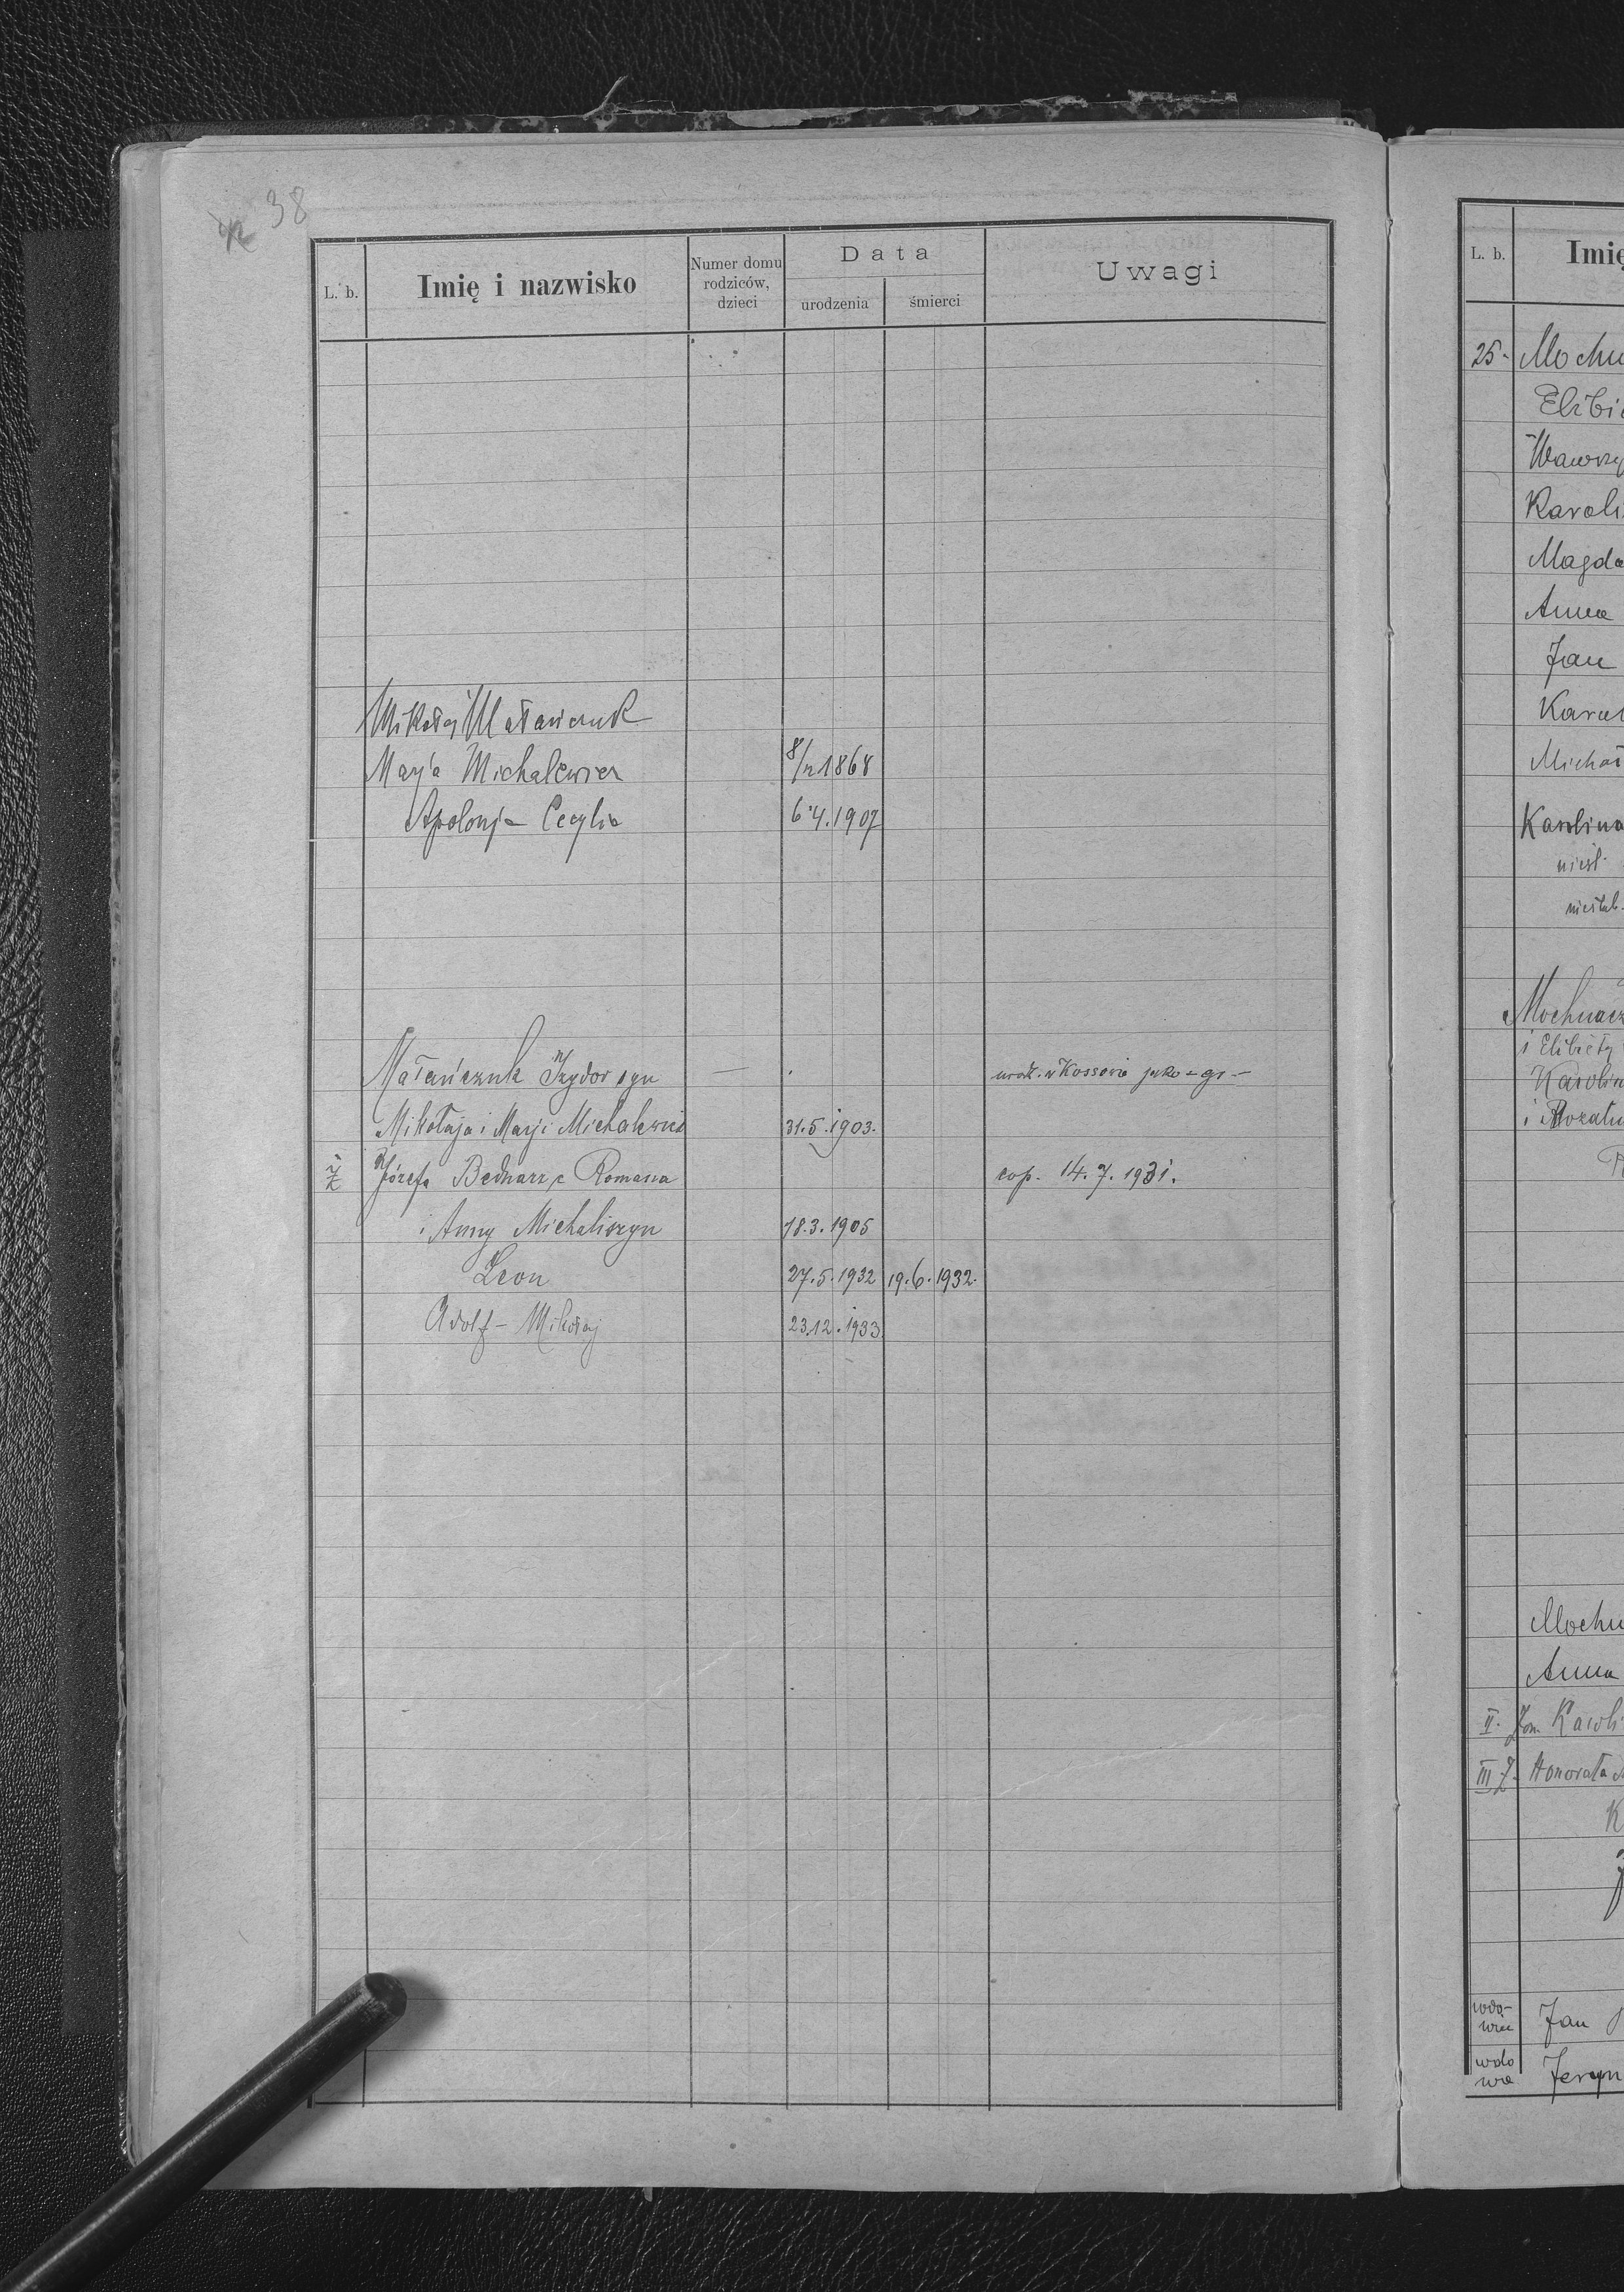 38
L. b.
Imię i nazwisko
Numer domu rodziców, dzieci
Data
urodzenia
śmierci
Uwagi
Mikołaj Matańczuk
Marja Michalewicz 8/12 1868
Apolonja Cecylia 6.4.1907
Matańczuk Izydor syn — urodz. w Kossowie jako gr
Mikołaja i Marji Michalewicz 31.5.1903.
i Ż Józefa Bednarz c Romana cop. 14.7.1931.
i Anny Michaliszyn 18.3.1905
Leon 27.5.1932 19.6.1932.
Adolf - Mikołaj 23.12.1933
L. b.
Imię
25-
Elżbi
Wawrzy
Karoli
Magda
Anna
Jan
Karol
Michał
Karolina
nieśl.
nieślub.
Mochnacz
i Elżbiety
Karolin
i
Mochn
Anna
II. Karoli
III Ż. Honorata
wdo-
wiec
Jan
wdo
wa